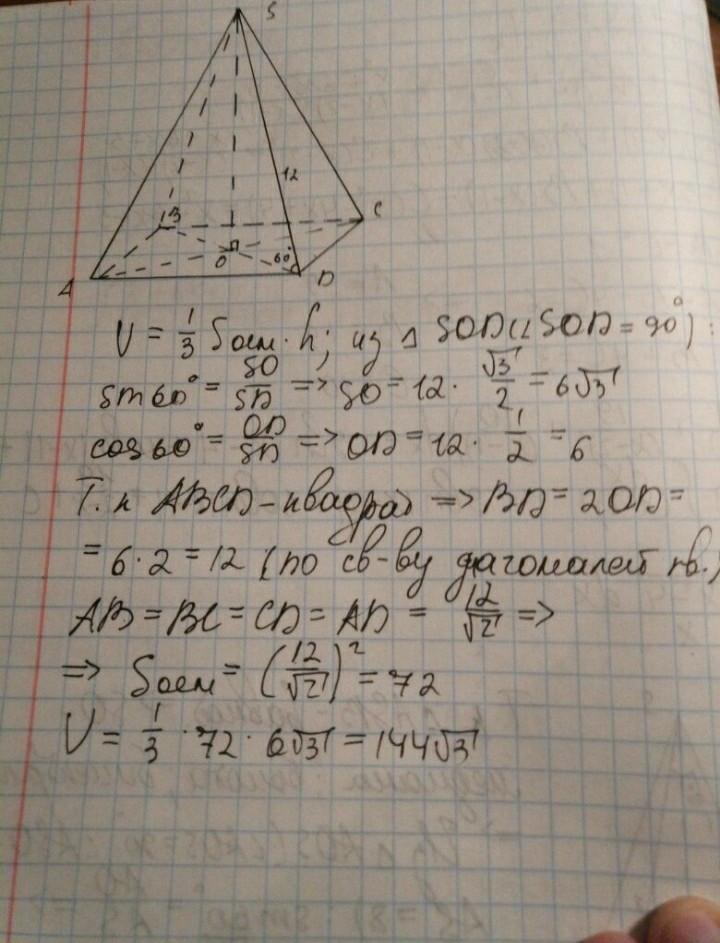 S
12
B
C
O
60°
A
D
V = 1/3 Sосн · h; из Δ SOD (∠SOD = 90°):
sin60° = SO/SD => SO = 12 · √3/2 = 6√3
cos60° = OD/SD => OD = 12 · 1/2 = 6
Т.к ABCD – квадрат => BD = 2OD =
= 6·2 = 12 (по св-ву диагоналей кв.)
AB = BC = CD = AD = 12/√2 =>
=> Sосн = (12/√2)² = 72
V = 1/3 · 72 · 6√3 = 144√3